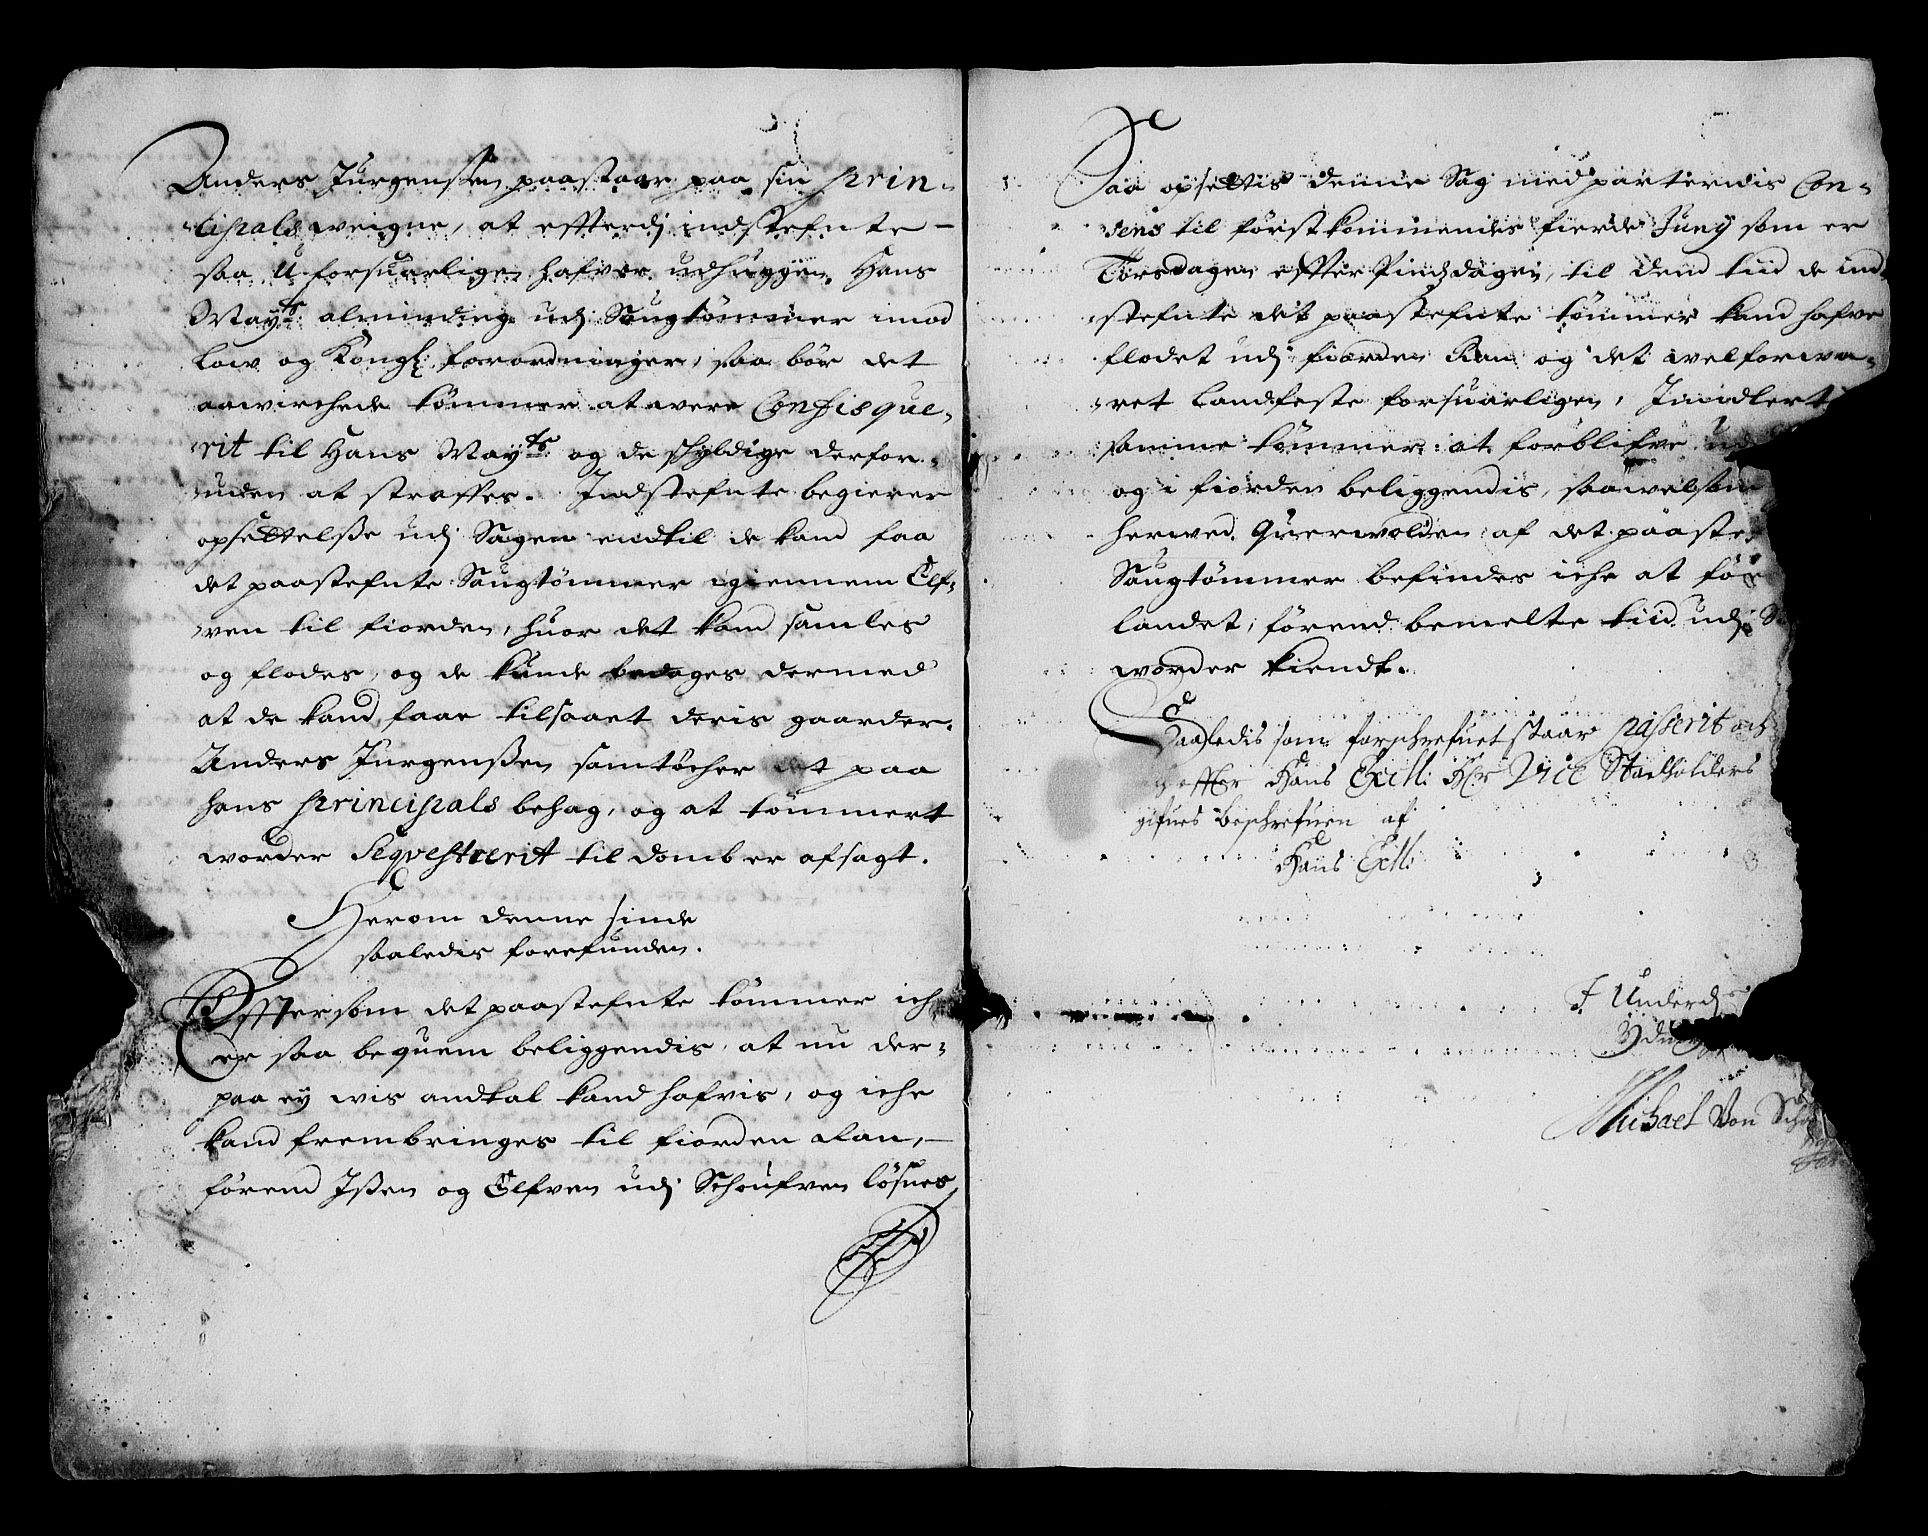 Anders Jurgenssen paastaar paa sin prin-
cipals weigne, at efftterdj indstefnte -
saa uforsuarligen hafver udhuggen Hans
Mayts alminding udj Saugtømmer imod
Low og Kongl forordninger, saa bør det
aawirchede tømmer at were Confisque-
rit til Hans Mayts og de schyldige derfor-
uden at straffes. Indstefnte begierer
opsettelsse udj Sagen indtil de kand faa
det paastefnte Saugtømmer igiennem Elf-
ven til fiorden, huor det kand samles
og flodes, og de kunde bedages dermed
at de kand faae tilsaaet deris gaarder.
Anders Jurgenssen samtøcher det paa
hans principals behag, og at tømmert
worder seqvestrerit til domb er afsagt.
Herom denne sinde
saaledis forefunden.
Efftersom det paastefnte tømmer ich
er saa bequem beliggendis, at nu der-
paa ey wis andtal kand hafvis, og iche
kand frembringes til fiorden Ran, -
førend Issen og Elfven udj Schoufven løsnes
Saa opsettis denne Sag med parternis Con-
sens til førstkommendis fierde Juny som er
Torsdagen effter Pindzdagen, til dend tiid de ind-
stefnte det paastefnte tømmer kand hafve
flodet udj fiorden Ran og det welforwa-
ret Landfeste forsuarligen, Imidlert
samme tømmer at forblifve ud
og i fiorden beliggendis, saawelsom
herved Querwolden af det paaste
Saugtømmer befindes iche at før
landet, førend bemelte tiid udj S
worder kiendt.
Saaledis som forschrefuet staar passerit och
effter Hans Excll: Hr Vice Stadholders
gifues beschrefuen af
Hans Excll:
Underd
Michael Von Sch